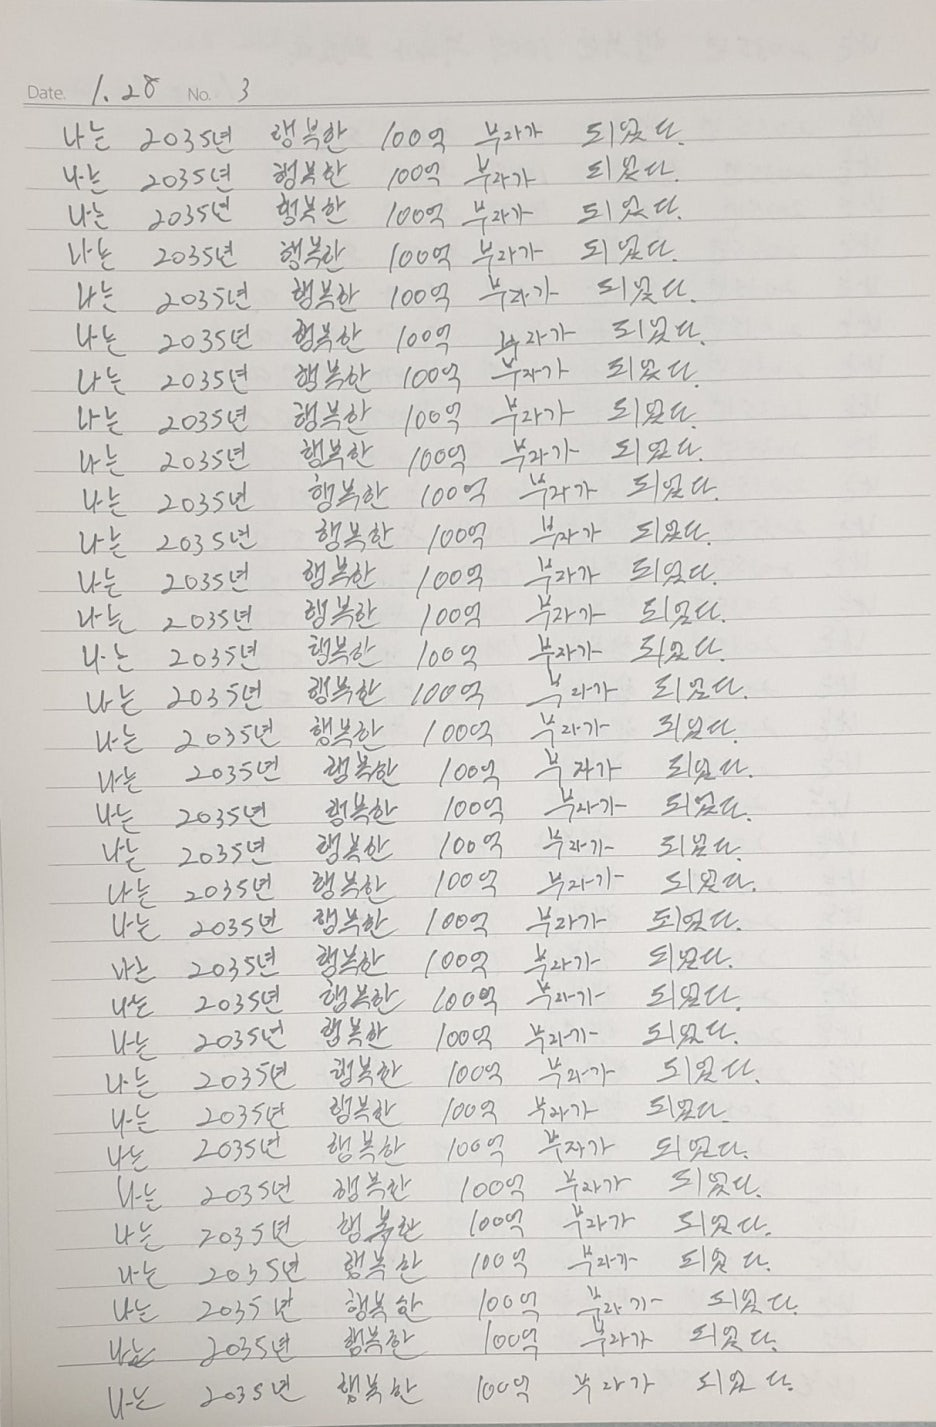 Date. 1. 28 No. 3
나는 2035년 행복한 100억 부자가 되었다.
나는 2035년 행복한 100억 부자가 되었다.
나는 2035년 행복한 100억 부자가 되었다.
나는 2035년 행복한 100억 부자가 되었다.
나는 2035년 행복한 100억 부자가 되었다.
나는 2035년 행복한 100억 부자가 되었다.
나는 2035년 행복한 100억 부자가 되었다.
나는 2035년 행복한 100억 부자가 되었다.
나는 2035년 행복한 100억 부자가 되었다.
나는 2035년 행복한 100억 부자가 되었다.
나는 2035년 행복한 100억 부자가 되었다.
나는 2035년 행복한 100억 부자가 되었다.
나는 2035년 행복한 100억 부자가 되었다.
나는 2035년 행복한 100억 부자가 되었다.
나는 2035년 행복한 100억 부자가 되었다.
나는 2035년 행복한 100억 부자가 되었다.
나는 2035년 행복한 100억 부자가 되었다.
나는 2035년 행복한 100억 부자가 되었다.
나는 2035년 행복한 100억 부자가 되었다.
나는 2035년 행복한 100억 부자가 되었다.
나는 2035년 행복한 100억 부자가 되었다.
나는 2035년 행복한 100억 부자가 되었다.
나는 2035년 행복한 100억 부자가 되었다.
나는 2035년 행복한 100억 부자가 되었다.
나는 2035년 행복한 100억 부자가 되었다.
나는 2035년 행복한 100억 부자가 되었다.
나는 2035년 행복한 100억 부자가 되었다.
나는 2035년 행복한 100억 부자가 되었다.
나는 2035년 행복한 100억 부자가 되었다.
나는 2035년 행복한 100억 부자가 되었다.
나는 2035년 행복한 100억 부자가 되었다.
나는 2035년 행복한 100억 부자가 되었다.
나는 2035년 행복한 100억 부자가 되었다.